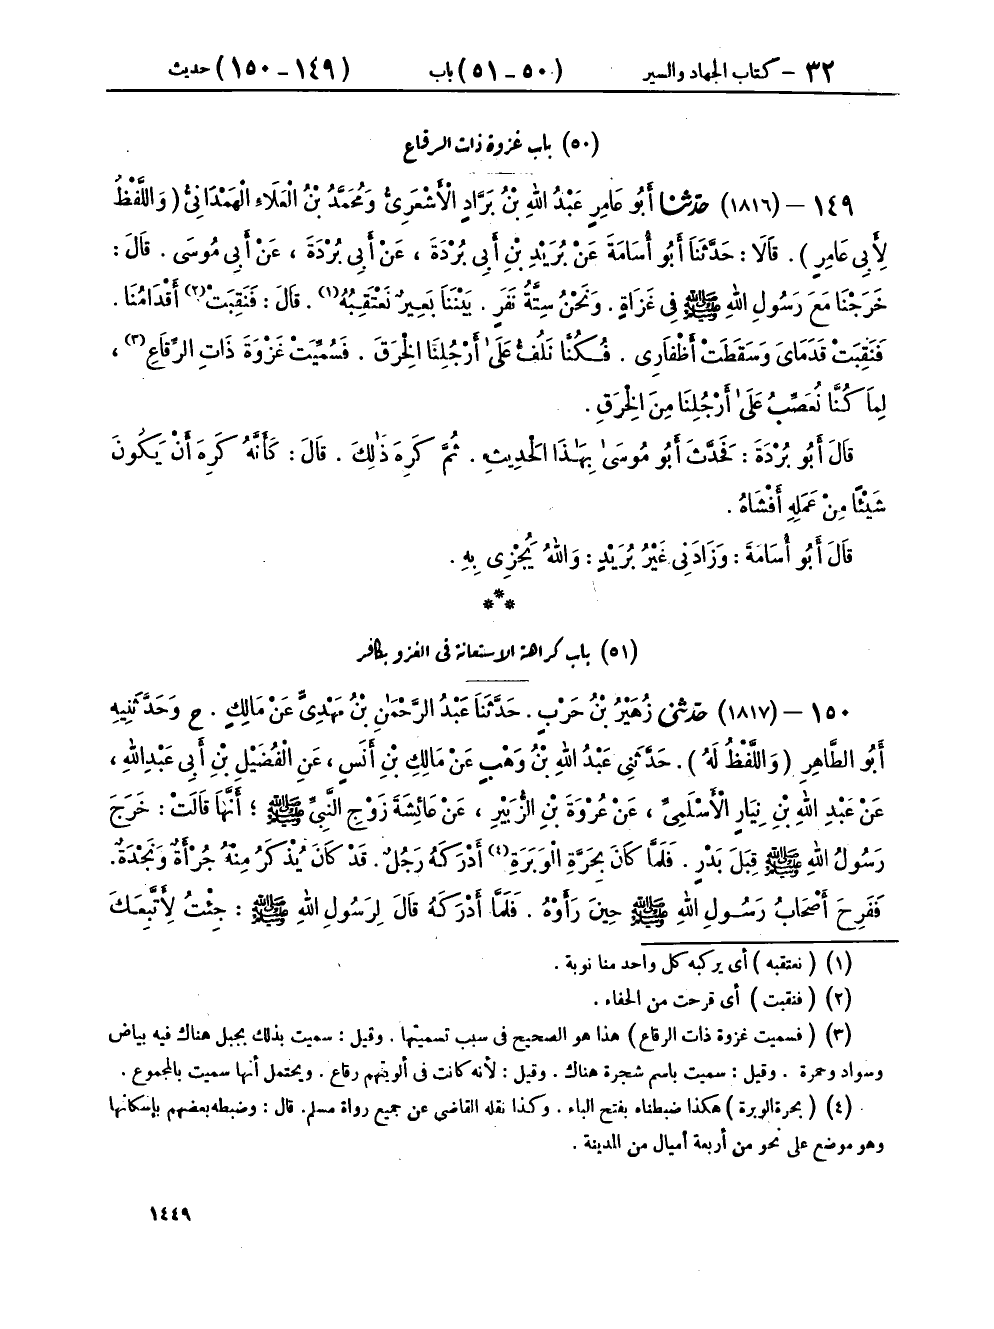 ٣٢ - كتاب الجهاد والسير (٥٠ - ٥١) باب (١٤٩ - ١٥٠) حديث
(٥٠) باب غزوة ذات الرقاع
١٤٩ - (١٨١٦) حَدَّثَنَا أَبُو عَامِرٍ عَبْدُ اللهِ بْنُ بَرَّادٍ الْأَشْعَرِىُّ وَمُحَمَّدُ بْنُ الْعَلَاءِ الْهَمْدَانِىُّ (وَاللَّفْظُ
لِأَبِى عَامِرٍ). قَالَا: حَدَّثَنَا أَبُو أُسَامَةَ عَنْ بُرَيْدِ بْنِ أَبِى بُرْدَةَ، عَنْ أَبِى بُرْدَةَ، عَنْ أَبِى مُوسَى. قَالَ:
خَرَجْنَا مَعَ رَسُولِ اللهِ ﷺ فِى غَزَاةٍ. وَنَحْنُ سِتَّةُ نَفَرٍ. بَيْنَنَا بَعِيرٌ نَعْتَقِبُهُ(١). قَالَ: فَنَقِبَتْ(٢) أَقْدَامُنَا.
فَنَقِبَتْ قَدَمَاىَ وَسَقَطَتْ أَظْفَارِى. فَكُنَّا نَلُفُّ عَلَىٰ أَرْجُلِنَا الْخِرَقَ. فَسُمِّيَتْ غَزْوَةَ ذَاتِ الرِّقَاعِ(٣)،
لِمَا كُنَّا نُعَصِّبُ عَلَىٰ أَرْجُلِنَا مِنَ الْخِرَقِ.
قَالَ أَبُو بُرْدَةَ: فَحَدَّثَ أَبُو مُوسَىٰ بِهَٰذَا الْحَدِيثِ. ثُمَّ كَرِهَ ذَٰلِكَ. قَالَ: كَأَنَّهُ كَرِهَ أَنْ يَكُونَ
شَيْئًا مِنْ عَمَلِهِ أَفْشَاهُ.
قَالَ أَبُو أُسَامَةَ: وَزَادَنِى غَيْرُ بُرَيْدٍ: وَاللهُ يُجْزِى بِهِ.
***
(٥١) باب كراهة الاستعانة فى الغزو بكافر
١٥٠ - (١٨١٧) حَدَّثَنِى زُهَيْرُ بْنُ حَرْبٍ. حَدَّثَنَا عَبْدُ الرَّحْمَٰنِ بْنُ مَهْدِىٍّ عَنْ مَالِكٍ. ح وَحَدَّثَنِيهِ
أَبُو الطَّاهِرِ (وَاللَّفْظُ لَهُ). حَدَّثَنِى عَبْدُ اللهِ بْنُ وَهْبٍ عَنْ مَالِكِ بْنِ أَنَسٍ، عَنِ الْفُضَيْلِ بْنِ أَبِى عَبْدِاللهِ،
عَنْ عَبْدِ اللهِ بْنِ نِيَارٍ الْأَسْلَمِىِّ، عَنْ عُرْوَةَ بْنِ الزُّبَيْرِ، عَنْ عَائِشَةَ زَوْجِ النَّبِىِّ ﷺ؛ أَنَّهَا قَالَتْ: خَرَجَ
رَسُولُ اللهِ ﷺ قِبَلَ بَدْرٍ. فَلَمَّا كَانَ بِحَرَّةِ الْوَبَرَةِ(٤) أَدْرَكَهُ رَجُلٌ. قَدْ كَانَ يُذْكَرُ مِنْهُ جُرْأَةٌ وَنَجْدَةٌ.
فَفَرِحَ أَصْحَابُ رَسُولِ اللهِ ﷺ حِينَ رَأَوْهُ. فَلَمَّا أَدْرَكَهُ قَالَ لِرَسُولِ اللهِ ﷺ: جِئْتُ لِأَتَّبِعَكَ
(١) (نعتقبه) أى يركبه كل واحد منا نوبة.
(٢) (فنقبت) أى قرحت من الحفاء.
(٣) (فسميت غزوة ذات الرقاع) هذا هو الصحيح فى سبب تسميتها. وقيل: سميت بذلك بجبل هناك فيه بياض
وسواد وحمرة. وقيل: سميت باسم شجرة هناك. وقيل: لأنه كانت فى ألويتهم رقاع. ويحتمل أنها سميت بالمجموع.
(٤) (بحرة الوبرة) هكذا ضبطناه بفتح الباء. وكذا نقله القاضى عن جميع رواة مسلم. قال: وضبطه بعضهم بإسكانها
وهو موضع على نحو من أربعة أميال من المدينة.
١٤٤٩